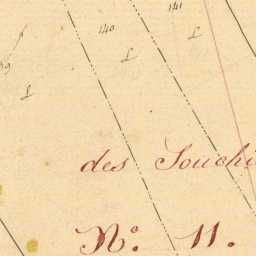 141
140
L
L
L
des
N°. 11.